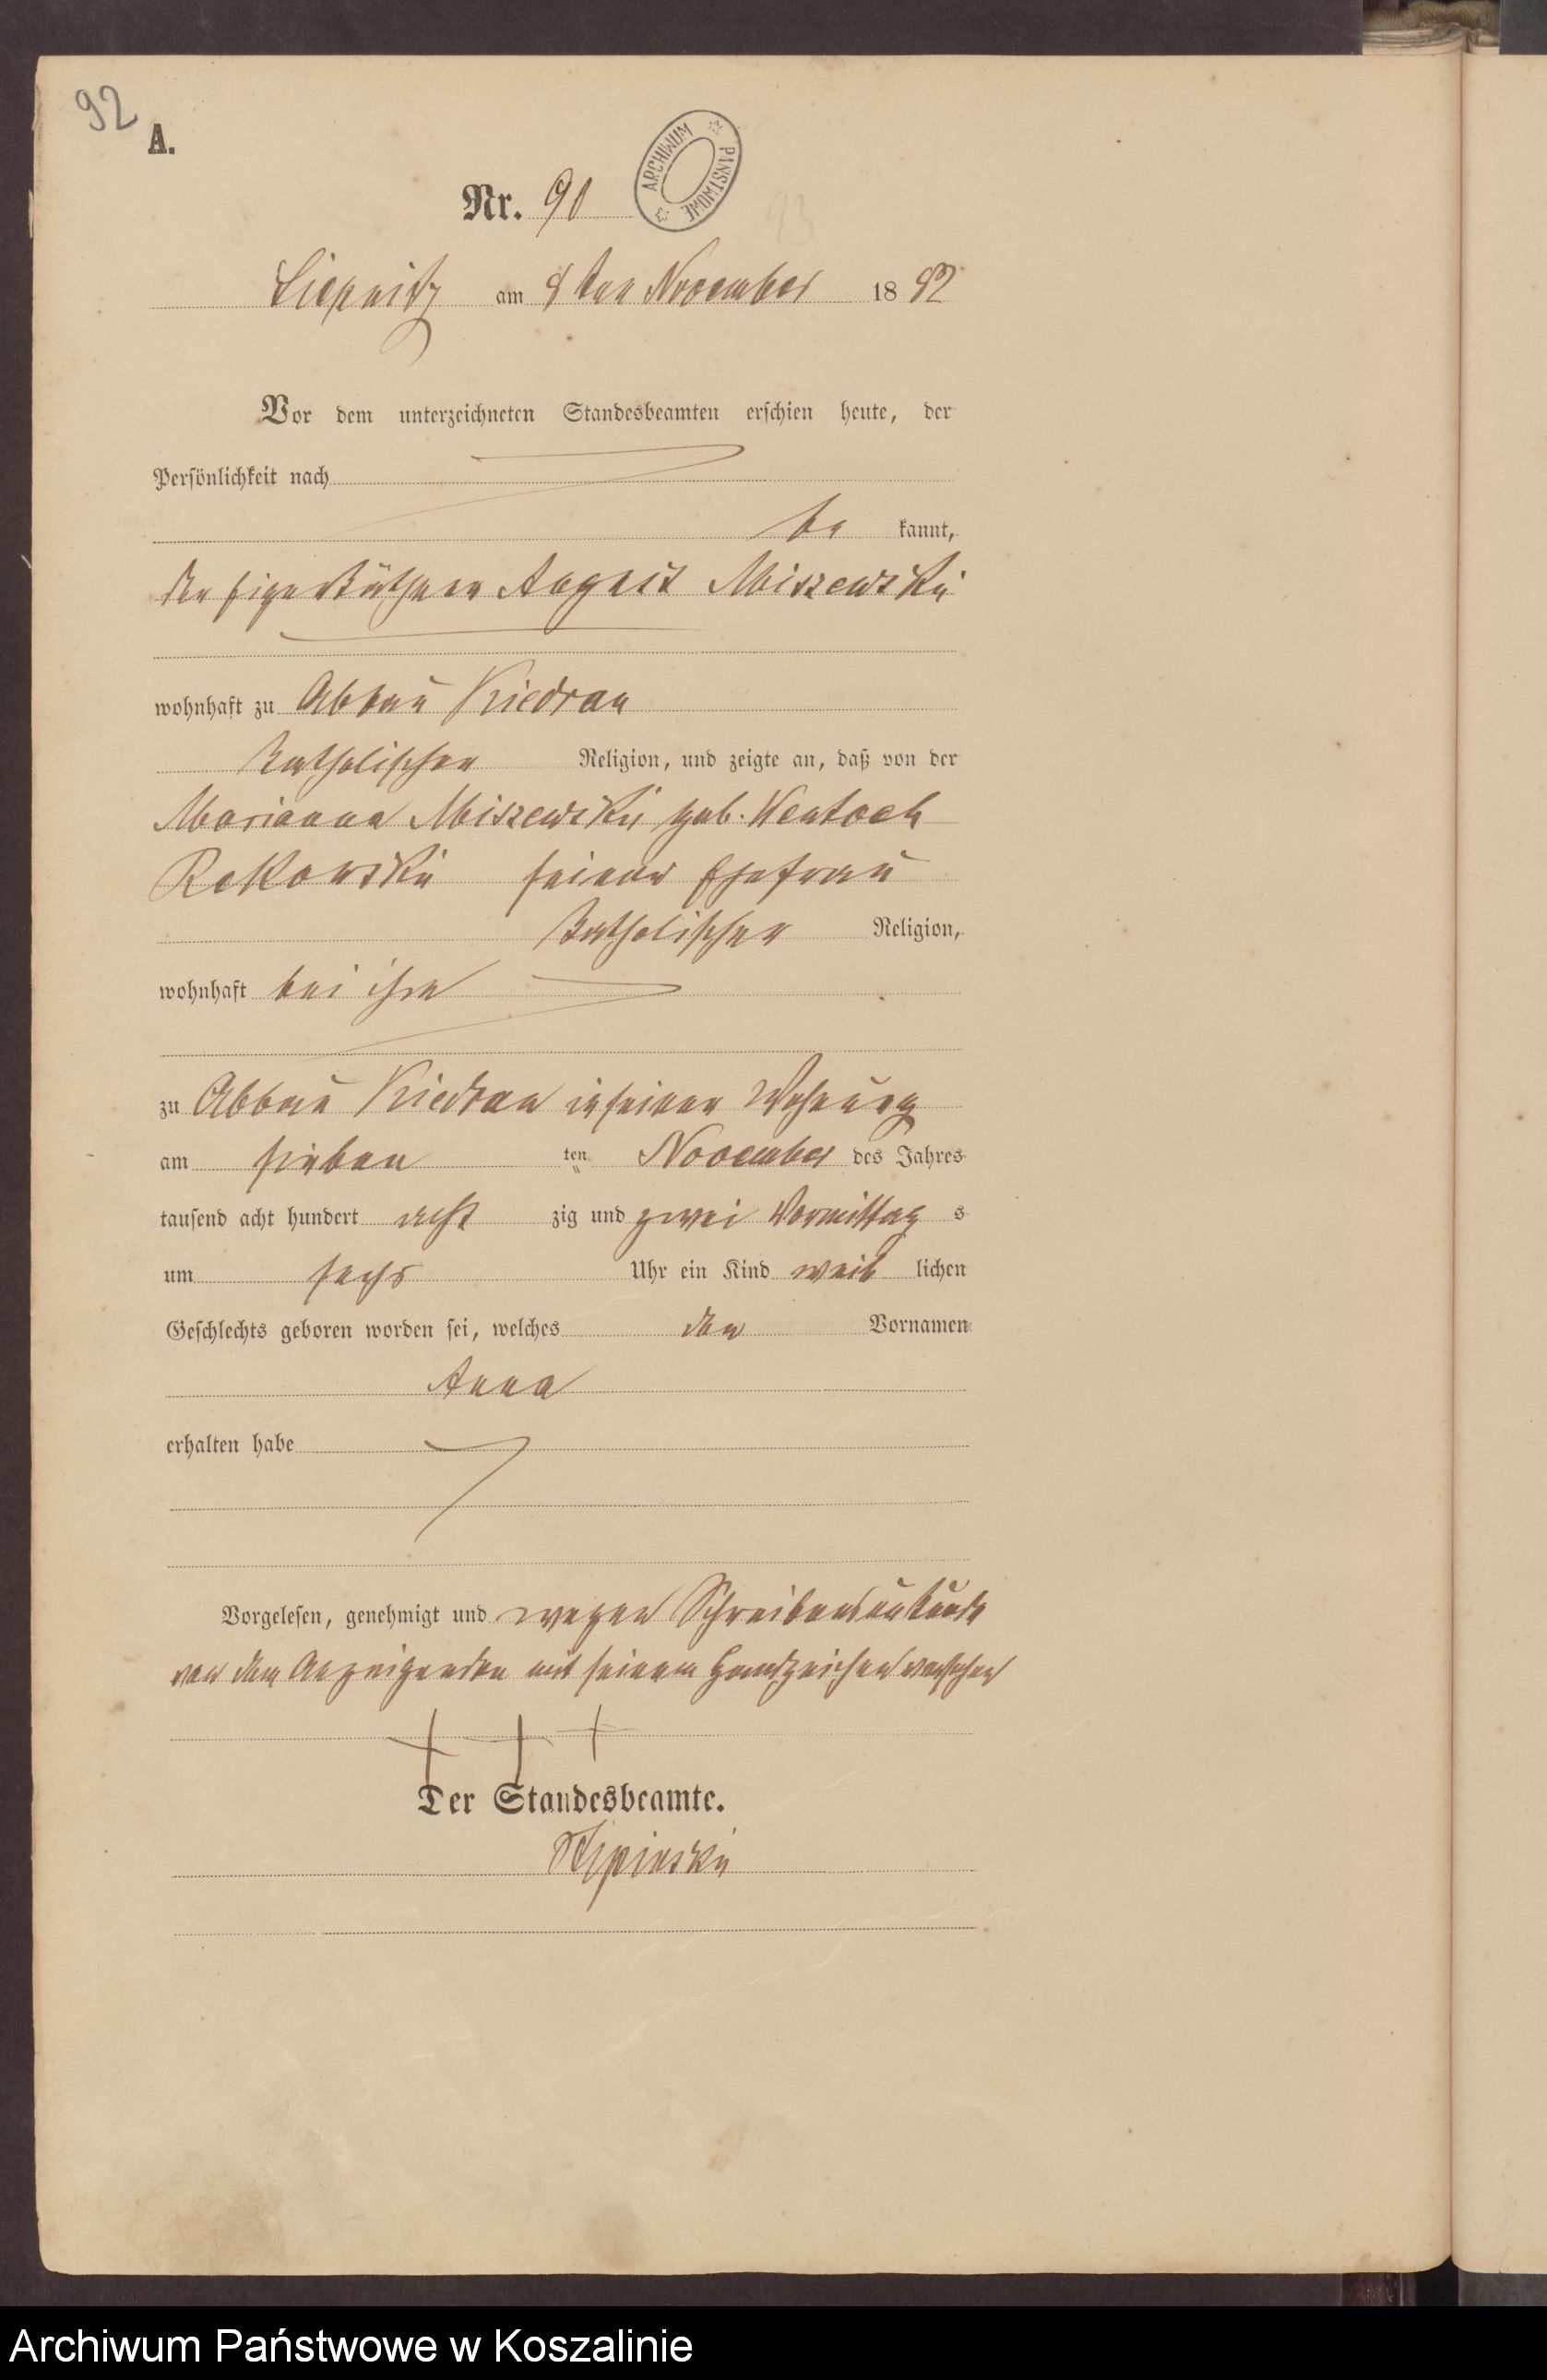 92
A.
Nr. 90
ARCHIWUM PAŃSTWOWE
93
Liepnitz am 8ten November 1882
Vor dem unterzeichneten Standesbeamten erschien heute, der
Persönlichkeit nach
be kannt,
der Eigenkäthner August Miszewski
wohnhaft zu Abbau Kiedrau
katholischer Religion, und zeigte an, daß von der
Marianna Miszewski geb. Wentoch
Rekowski seiner Ehefrau
katholischer Religion,
wohnhaft bei ihm
zu Abbau Kiedrau in seiner Wohnung
am sieben ten November des Jahres
tausend acht hundert acht zig und zwei Vormittag s
um sechs Uhr ein Kind weib lichen
Geschlechts geboren worden sei, welches den Vornamen
Anna
erhalten habe
Vorgelesen, genehmigt und wegen Schreibensunkunde
von dem Anzeigenden mit seinem Handzeichen versehen
+ + +
Der Standesbeamte.
Archiwum Państwowe w Koszalinie